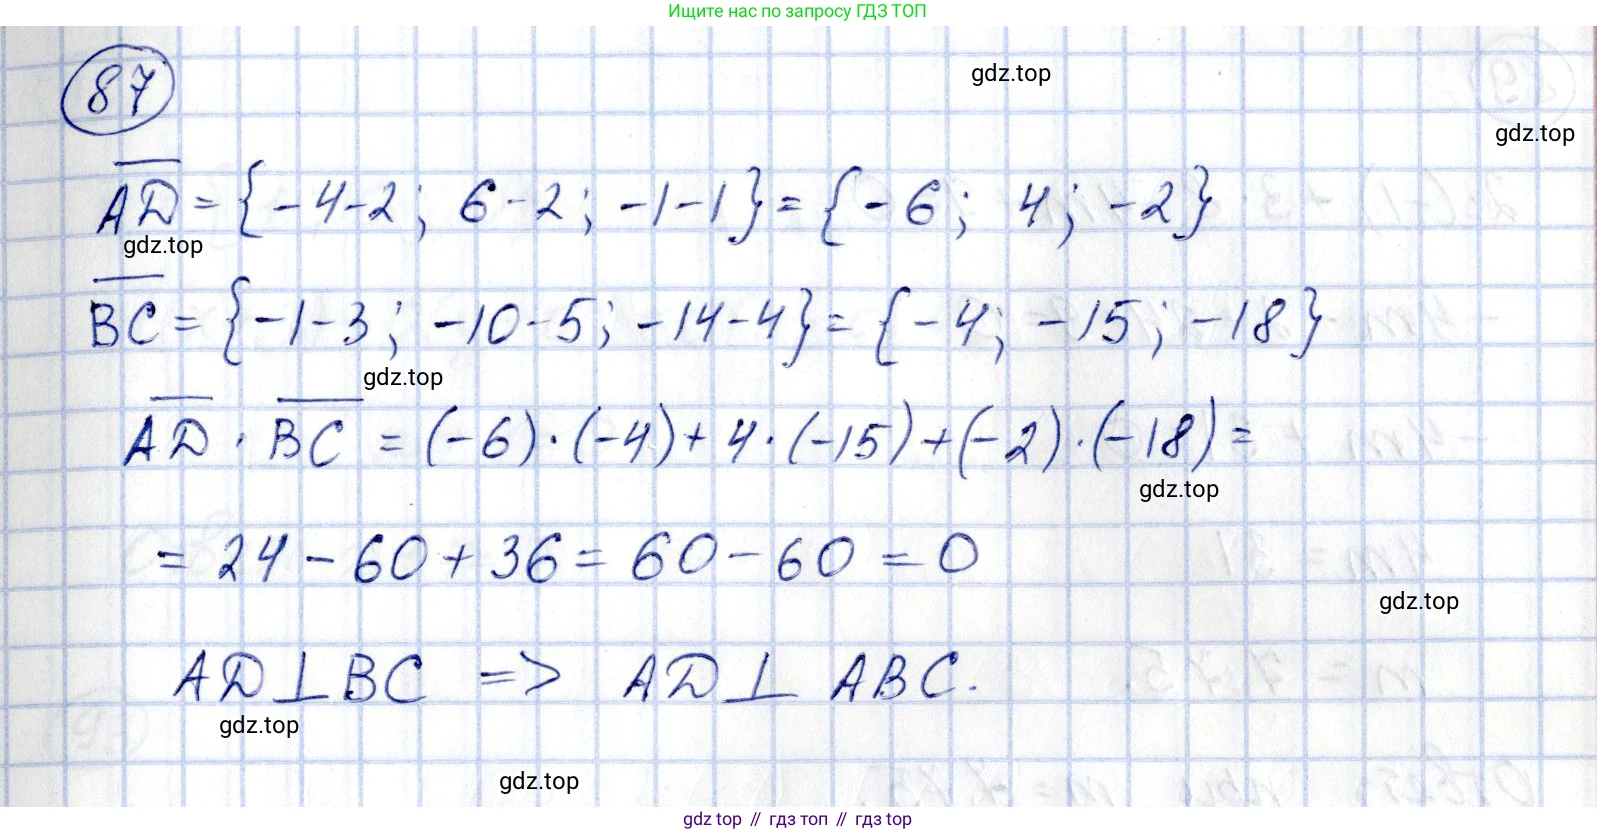 Ищите нас по запросу ГДЗ ТОП
87
gdz.top
gdz.top
AD = {-4-2; 6-2; -1-1} = {-6; 4; -2}
gdz.top
BC = {-1-3; -10-5; -14-4} = {-4; -15; -18}
gdz.top
AD · BC = (-6)·(-4)+4·(-15)+(-2)·(-18)=
gdz.top
= 24-60+36=60-60=0
gdz.top
AD⊥BC => AD⊥ABC.
gdz.top
gdz.top
gdz top // гдз топ // гдз top